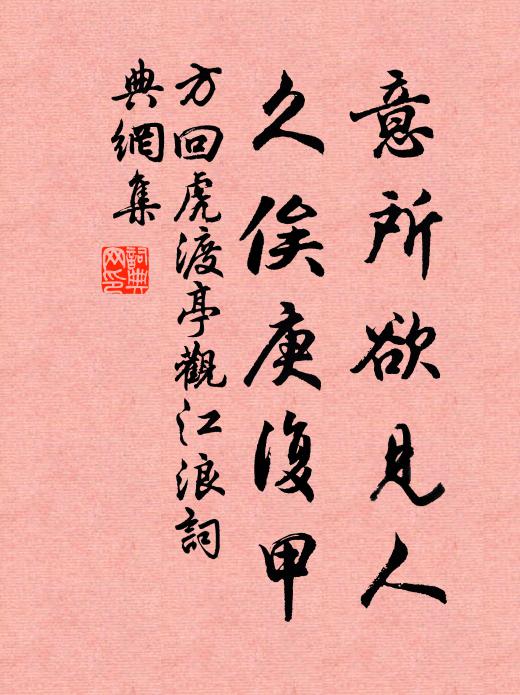 意所欲見人
久俟庚復甲
方回虎渡亭觀江浪詞
典網集
詞典網印